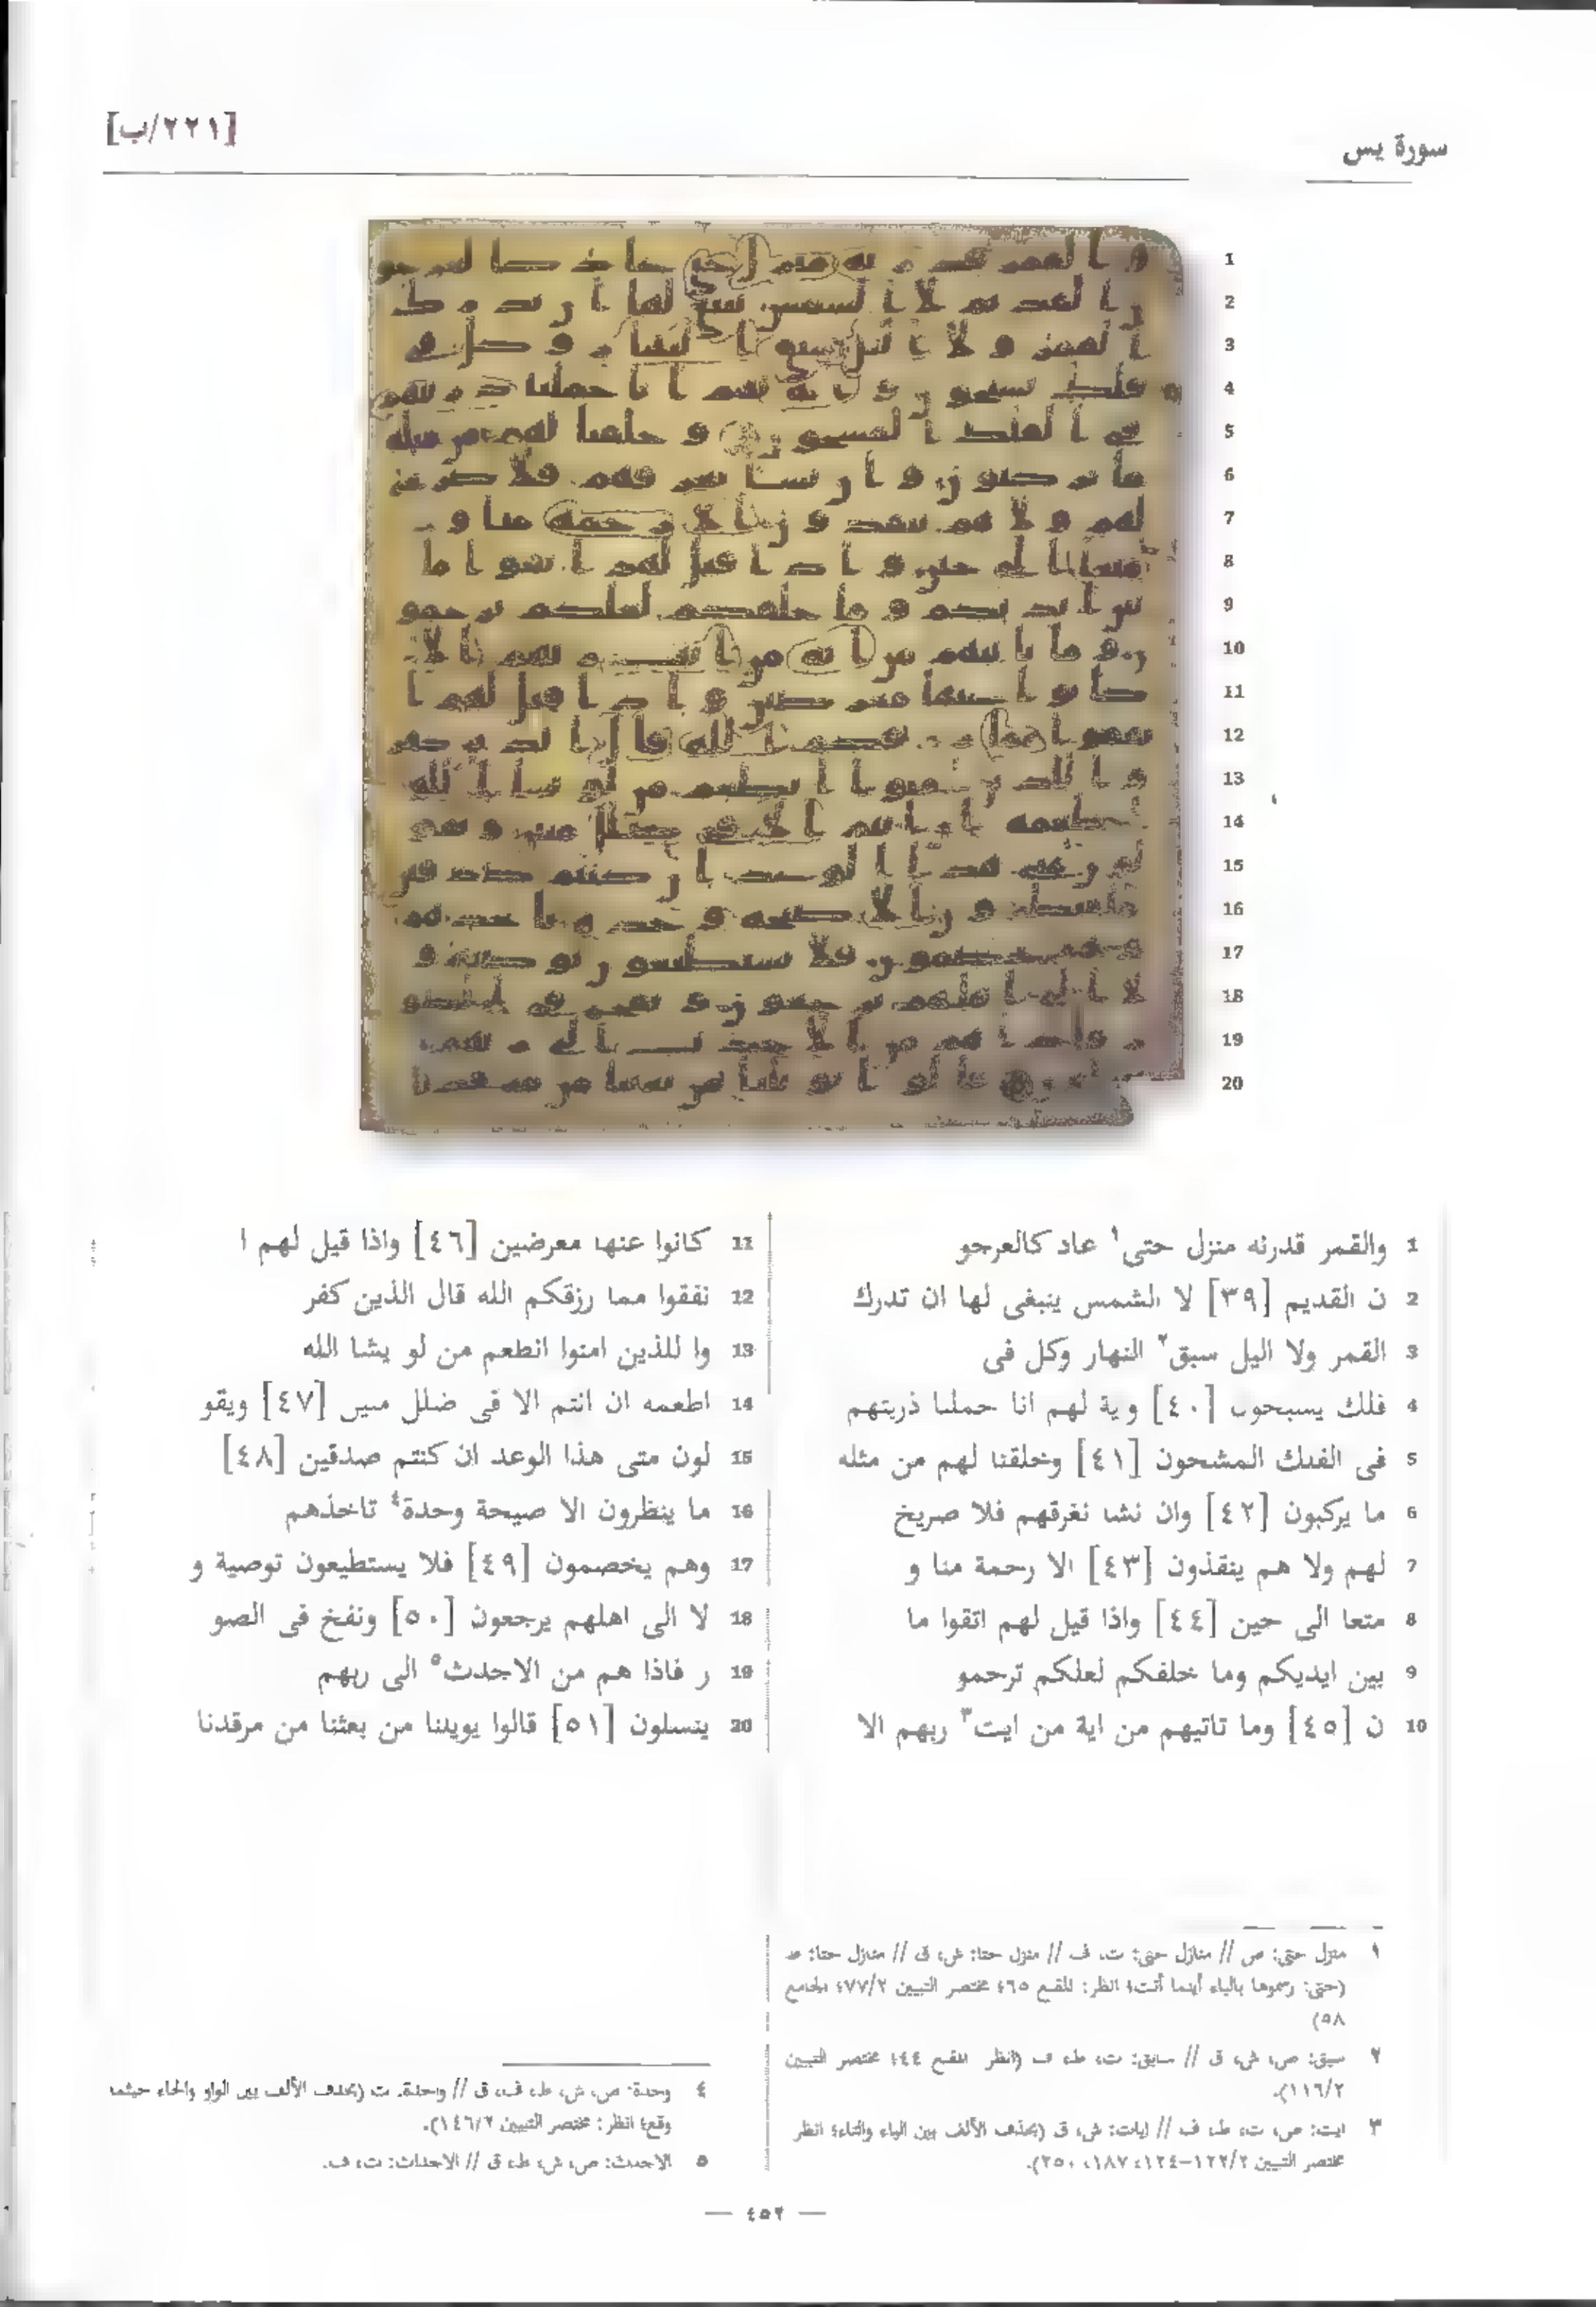 [٢٢١/ب]
سورة يس
1 والقمر قدرنه منزل حتى١ عاد كالعرجو
2 ن القديم [٣٩] لا الشمس ينبغى لها ان تدرك
3 القمر ولا اليل سبق٢ النهار وكل فى
4 فلك يسبحون [٤٠] وية لهم انا حملنا ذريتهم
5 فى الفلك المشحون [٤١] وخلقنا لهم من مثله
6 ما يركبون [٤٢] وان نشا نغرقهم فلا صريخ
7 لهم ولا هم ينقذون [٤٣] الا رحمة منا و
8 متعا الى حين [٤٤] واذا قيل لهم اتقوا ما
9 بين ايديكم وما خلفكم لعلكم ترحمو
10 ن [٤٥] وما تاتيهم من اية من ايت٣ ربهم الا
11 كانوا عنها معرضين [٤٦] واذا قيل لهم ا
12 نفقوا مما رزقكم الله قال الذين كفر
13 وا للذين امنوا انطعم من لو يشا الله
14 اطعمه ان انتم الا فى ضلل مبين [٤٧] ويقو
15 لون متى هذا الوعد ان كنتم صدقين [٤٨]
16 ما ينظرون الا صيحة وحدة٤ تاخذهم
17 وهم يخصمون [٤٩] فلا يستطيعون توصية و
18 لا الى اهلهم يرجعون [٥٠] ونفخ فى الصو
19 ر فاذا هم من الاجدث٥ الى ربهم
20 ينسلون [٥١] قالوا يويلنا من بعثنا من مرقدنا
١ منزل حتى: ص // منازل حتى: ت، ف // منزل حتا: ش، ق // منازل حتا: ط
(حتى: رسموها بالياء أينما أتت؛ انظر: المقنع ٤٦٥ مختصر التبيين ٤٧٧/٢ الجامع
٥٨)
٢ سبق: ص، ش، ق // سابق: ت، ط، ف (انظر المقنع ٤٤؛ مختصر التبيين
١١٦/٢).
٣ ايت: ص، ت، ط، ف // ايات: ش، ق (بحذف الألف بين الياء والتاء؛ انظر
مختصر التبيين ١٢٢/٢-١٢٤، ١٨٧، ٢٥٠).
٤ وحدة: ص، ش، ط، ف، ق // وحدة. ت (بحذف الألف بين الواو والحاء حيثما
وقع؛ انظر: مختصر التبيين ١٤٦/٢).
٥ الاجدث: ص، ش، ط، ق // الاجداث: ت، ف.
— ٤٥٢ —